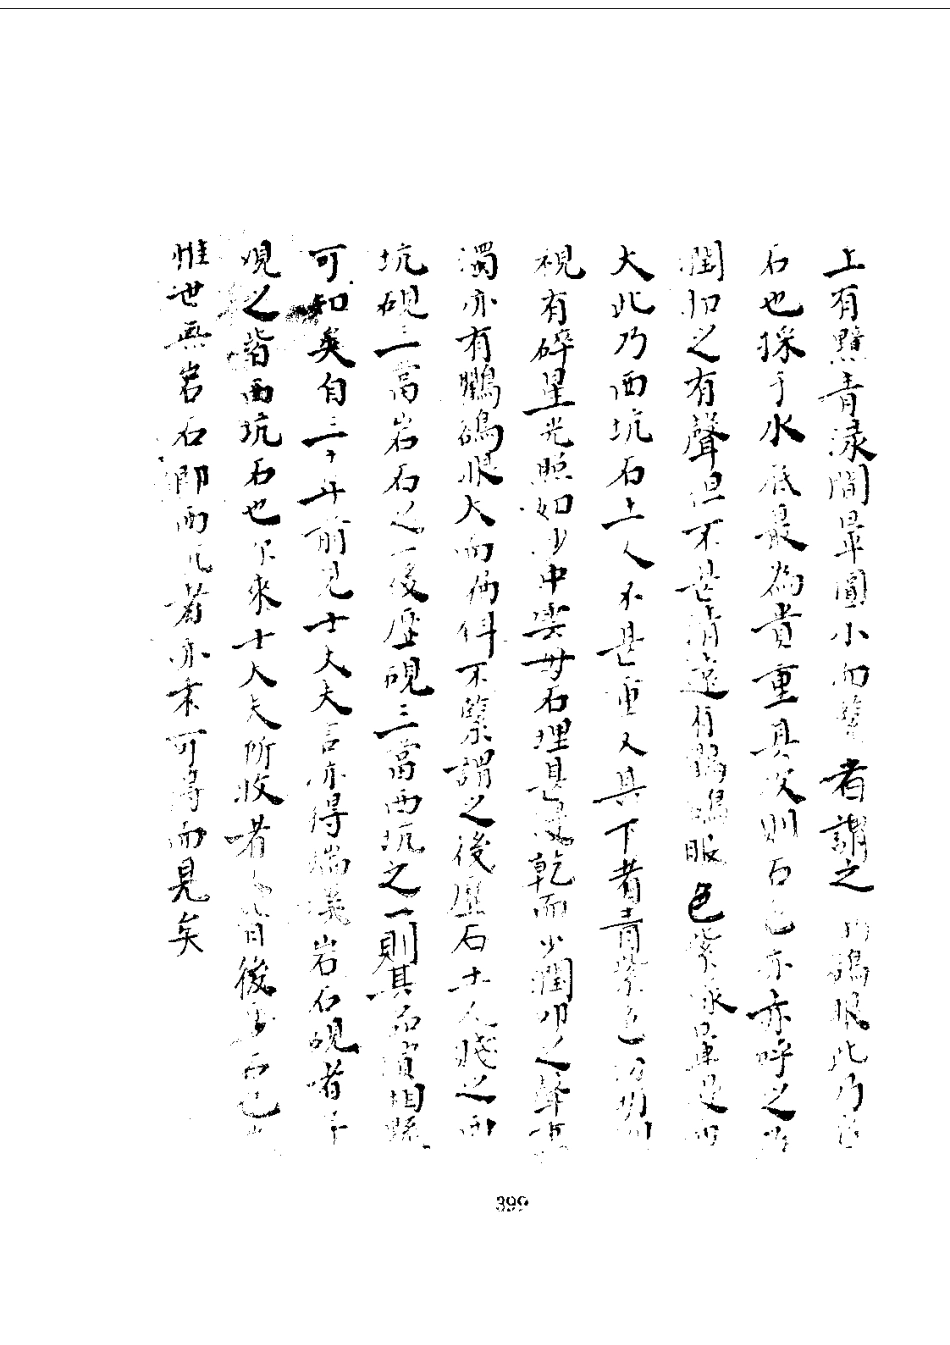 上有點青綠間暈圓小而緊者謂之鴝鵒眼此乃岩
石也採于水底最為貴重其次則石色亦赤呵之乃
潤扣之有聲但不甚清遠有鸜鵒眼色紫綠暈
大此乃西坑石土人不甚重又其下者青紫色
視有碎星光照如沙中雲母石理甚慢乾而少潤叩之聲
濁亦有鸜鵒眼大而偏斜不緊謂之後歷石土人賤之西
坑硯三當岩石之一後歷硯三當西坑之一則其品價相懸
可知矣自三十年前見士大夫言亦得端溪岩石硯者予
硯之皆西坑石也尔來士大夫所收者又皆後歷石也
惟世無岩石即西坑者亦未可得而見矣
399